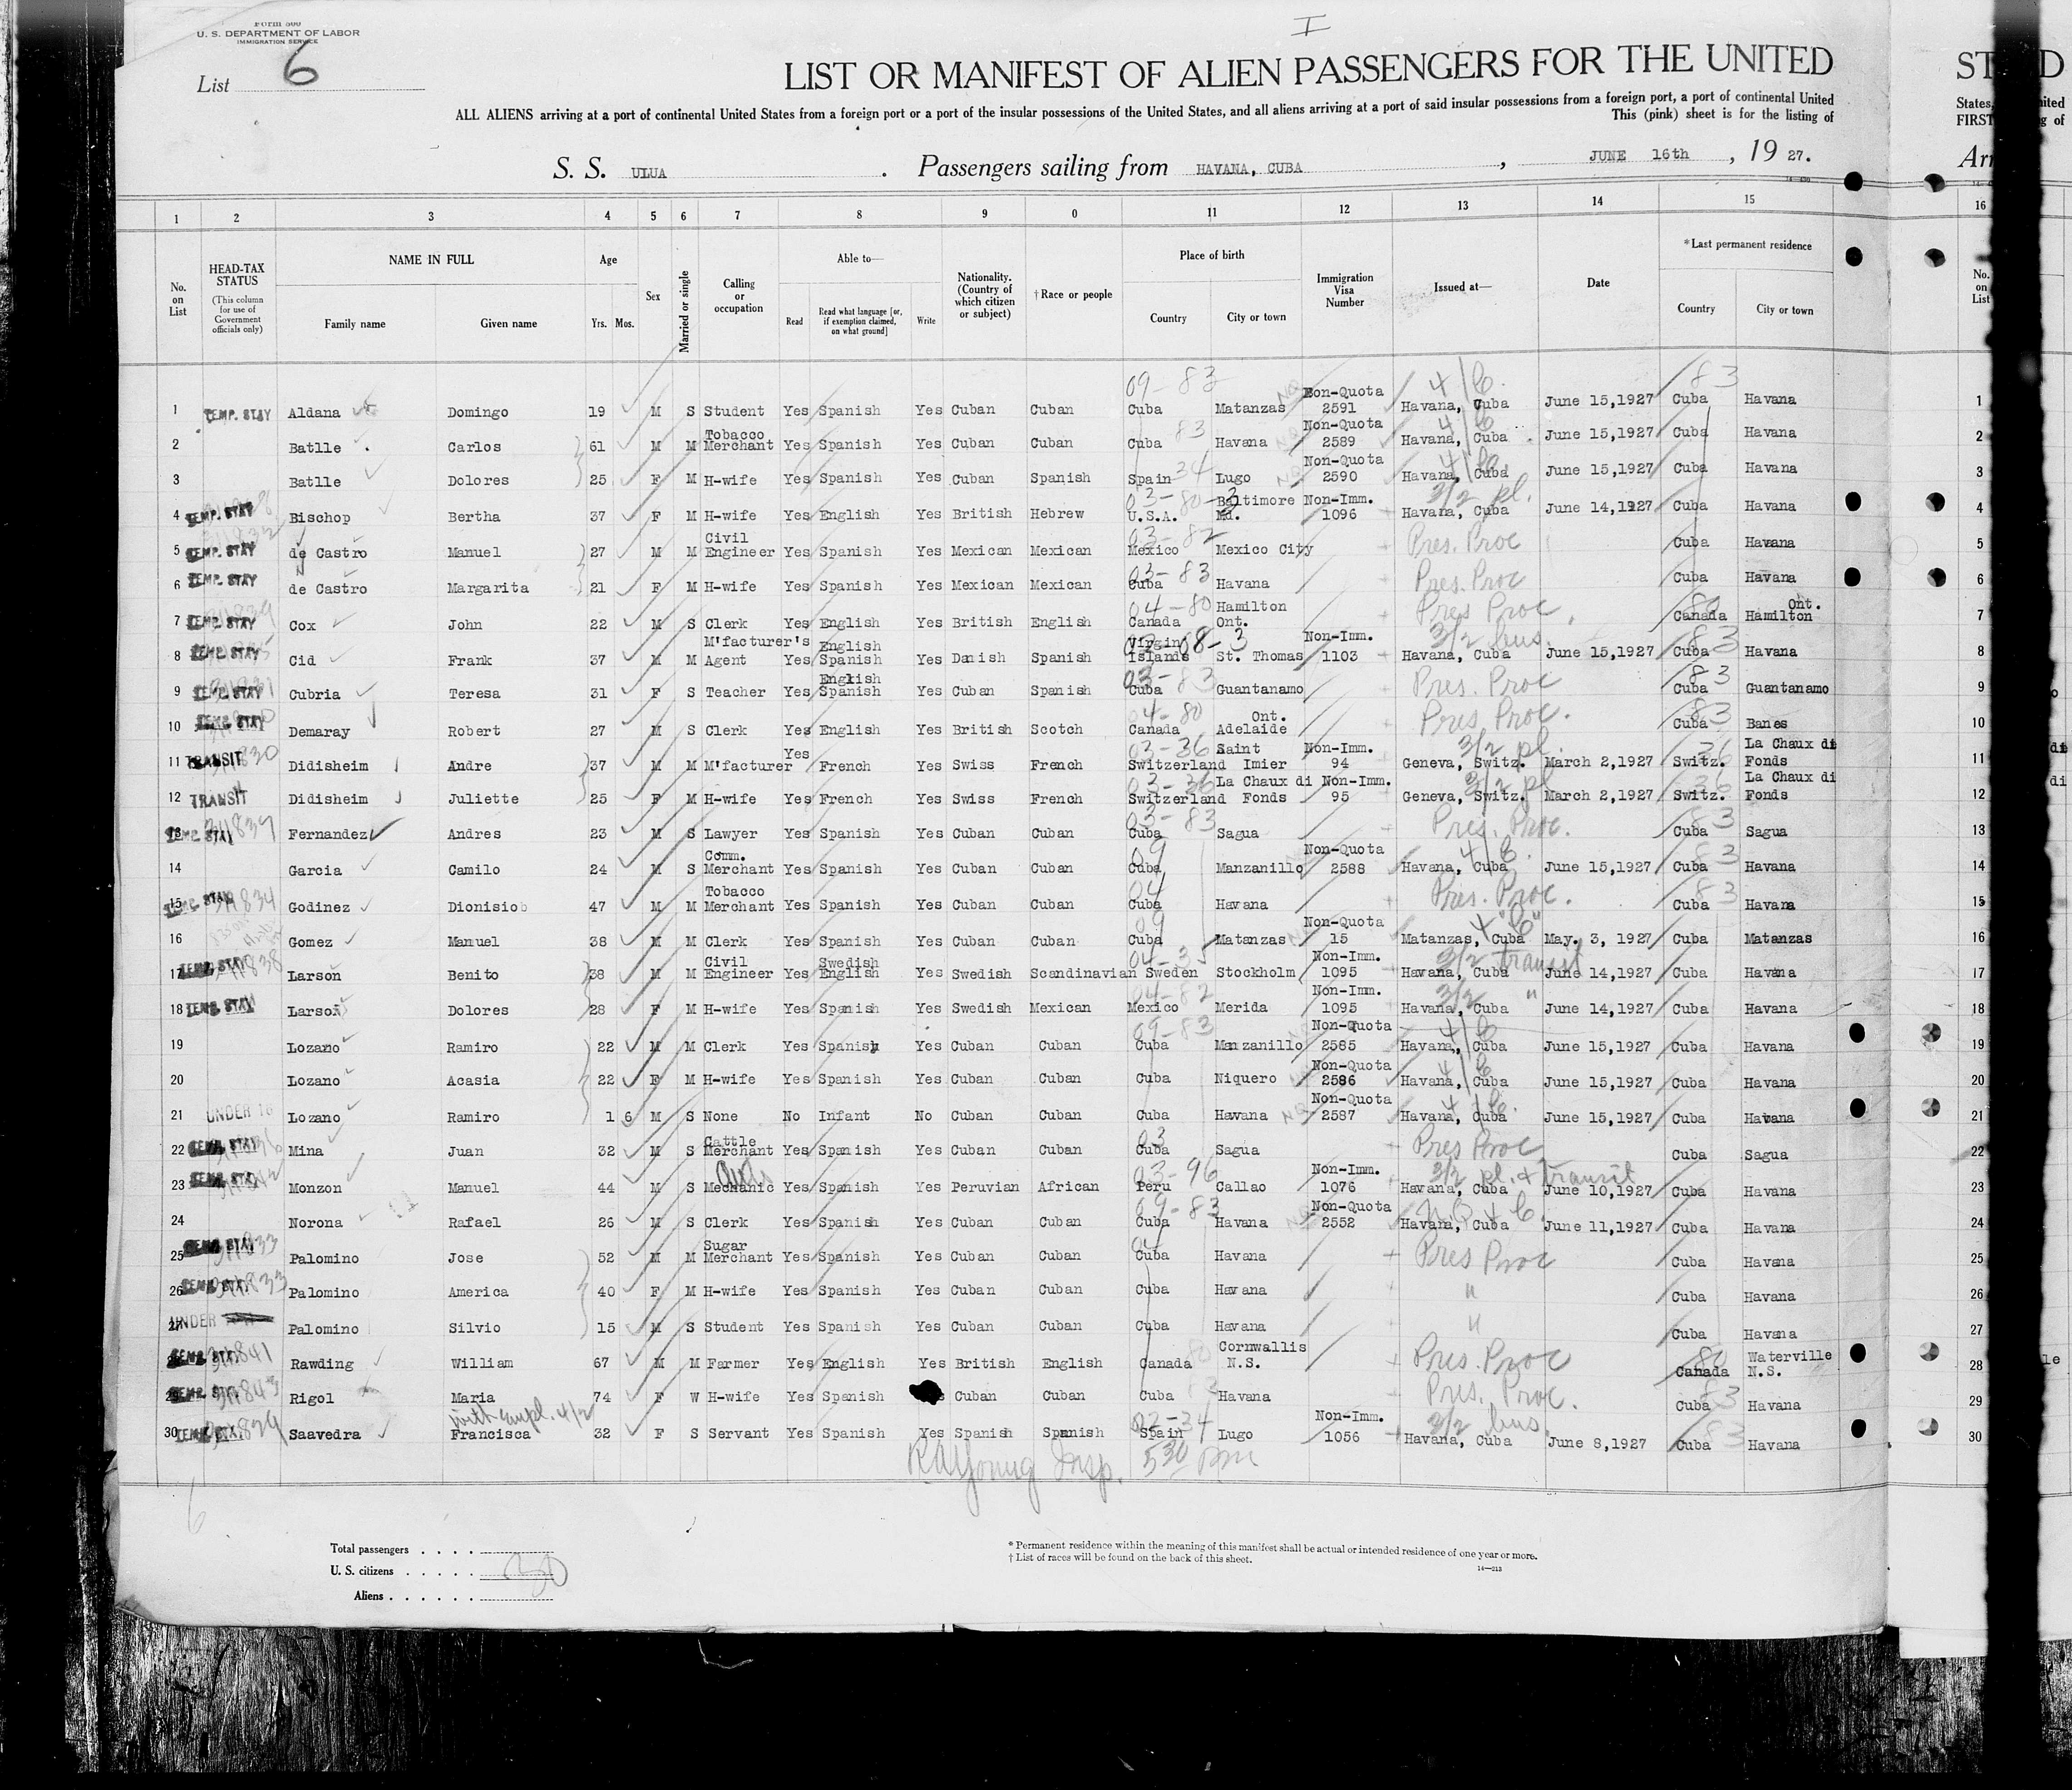 Form 500
U. S. DEPARTMENT OF LABOR
IMMIGRATION SERVICE
List 6
I
LIST OR MANIFEST OF ALIEN PASSENGERS FOR THE UNITED
ST D
ALL ALIENS arriving at a port of continental United States from a foreign port or a port of the insular possessions of the United States, and all aliens arriving at a port of said insular possessions from a foreign port, a port of continental United
This (pink) sheet is for the listing of
States,
FIRST
S. S. ULUA . Passengers sailing from HAVANA, CUBA , JUNE 16th , 19 27.
1 2 3 4 5 6 7 8 9 0 11 12 13 14 15 16
No. on List
HEAD-TAX STATUS (This column for use of Government officials only)
NAME IN FULL Family name Given name
Age Yrs. Mos.
Sex
Married or single
Calling or occupation
Able to— Read Read what language [or, if exemption claimed, on what ground] Write
Nationality. (Country of which citizen or subject)
† Race or people
Place of birth Country City or town
Immigration Visa Number
Issued at—
Date
* Last permanent residence Country City or town
No. on List
1 TEMP. STAY Aldana Domingo 19 M S Student Yes Spanish Yes Cuban Cuban 09-83 Cuba Matanzas Non-Quota 2591 Havana, Cuba June 15,1927 83 Cuba Havana 1
2 Batlle Carlos 61 M M Tobacco Merchant Yes Spanish Yes Cuban Cuban Cuba 83 Havana Non-Quota 2589 Havana, Cuba June 15,1927 Cuba Havana 2
3 Batlle Dolores 25 F M H-wife Yes Spanish Yes Cuban Spanish Spain 34 Lugo Non-Quota 2590 Havana, Cuba June 15,1927 Cuba Havana 3
4 TEMP. STAY Bischop Bertha 37 F M H-wife Yes English Yes British Hebrew 03-80-3 U.S.A. Baltimore Md. Non-Imm. 1096 3/2 pl. Havana, Cuba June 14,1927 Cuba Havana 4
5 TEMP. STAY de Castro Manuel 27 M M Civil Engineer Yes Spanish Yes Mexican Mexican 03-82 Mexico Mexico City Pres. Proc Cuba Havana 5
6 TEMP. STAY de Castro Margarita 21 F M H-wife Yes Spanish Yes Mexican Mexican 03-83 Cuba Havana Pres. Proc Cuba Havana 6
7 TEMP. STAY Cox John 22 M S Clerk Yes English Yes British English 04-80 Canada Hamilton Ont. Pres Proc 80 Canada Hamilton Ont. 7
8 TEMP. STAY Cid Frank 37 M M M'facturer's Agent Yes English Spanish Yes Danish Spanish Virgin Islands St. Thomas Non-Imm. 1103 3/2 bus. Havana, Cuba June 15,1927 83 Cuba Havana 8
9 TEMP. STAY Cubria Teresa 31 F S Teacher Yes English Spanish Yes Cuban Spanish 03-83 Cuba Guantanamo Pres. Proc 83 Cuba Guantanamo 9
10 TEMP. STAY Demaray Robert 27 M S Clerk Yes English Yes British Scotch 04-80 Canada Ont. Adelaide Pres. Proc. 83 Cuba Banes 10
11 TRANSIT Didisheim Andre 37 M M M'facturer Yes French Yes Swiss French 03-36 Switzerland Saint Imier Non-Imm. 94 3/2 pl Geneva, Switz. March 2,1927 36 Switz. La Chaux di Fonds 11
12 TRANSIT Didisheim Juliette 25 F M H-wife Yes French Yes Swiss French 03-36 Switzerland La Chaux di Fonds Non-Imm. 95 3/2 pl Geneva, Switz. March 2,1927 36 Switz. La Chaux di Fonds 12
13 TEMP. STAY Fernandez Andres 23 M S Lawyer Yes Spanish Yes Cuban Cuban 03-83 Cuba Sagua Pres. Proc. 83 Cuba Sagua 13
14 Garcia Camilo 24 M S Comm. Merchant Yes Spanish Yes Cuban Cuban 09 Cuba Manzanillo Non-Quota 2588 Havana, Cuba June 15,1927 83 Cuba Havana 14
15 TEMP. STAY Godinez Dionisio 47 M M Tobacco Merchant Yes Spanish Yes Cuban Cuban 04 Cuba Havana Pres. Proc. 83 Cuba Havana 15
16 Gomez Manuel 38 M M Clerk Yes Spanish Yes Cuban Cuban 09 Cuba Matanzas Non-Quota 15 Matanzas, Cuba May. 3, 1927 Cuba Matanzas 16
17 TEMP. STAY Larson Benito 38 M M Civil Engineer Yes Swedish English Yes Swedish Scandinavian 04-35 Sweden Stockholm Non-Imm. 1095 3/2 transit Havana, Cuba June 14,1927 Cuba Havana 17
18 TEMP. STAY Larson Dolores 28 F M H-wife Yes Spanish Yes Swedish Mexican 04-82 Mexico Merida Non-Imm. 1095 3/2 " Havana, Cuba June 14,1927 Cuba Havana 18
19 Lozano Ramiro 22 M M Clerk Yes Spanish Yes Cuban Cuban 09-83 Cuba Manzanillo Non-Quota 2585 Havana, Cuba June 15,1927 Cuba Havana 19
20 Lozano Acasia 22 F M H-wife Yes Spanish Yes Cuban Cuban Cuba Niquero Non-Quota 2586 Havana, Cuba June 15,1927 Cuba Havana 20
21 UNDER 16 Lozano Ramiro 1 6 M S None No Infant No Cuban Cuban Cuba Havana Non-Quota 2587 Havana, Cuba June 15,1927 Cuba Havana 21
22 TEMP. STAY Mina Juan 32 M S Cattle Merchant Yes Spanish Yes Cuban Cuban 03 Cuba Sagua Pres Proc Cuba Sagua 22
23 TEMP. STAY Monzon Manuel 44 M S Mechanic Yes Spanish Yes Peruvian African 03-96 Peru Callao Non-Imm. 1076 3/2 pl. & transit Havana, Cuba June 10,1927 Cuba Havana 23
24 Norona Rafael 26 M S Clerk Yes Spanish Yes Cuban Cuban 09-83 Cuba Havana Non-Quota 2552 Havana, Cuba June 11,1927 Cuba Havana 24
25 TEMP. STAY Palomino Jose 52 M M Sugar Merchant Yes Spanish Yes Cuban Cuban 04 Cuba Havana Pres Proc Cuba Havana 25
26 TEMP. STAY Palomino America 40 F M H-wife Yes Spanish Yes Cuban Cuban Cuba Havana " Cuba Havana 26
27 UNDER Palomino Silvio 15 M S Student Yes Spanish Yes Cuban Cuban Cuba Havana " Cuba Havana 27
28 TEMP. STAY Rawding William 67 M M Farmer Yes English Yes British English Canada 80 Cornwallis N.S. Pres. Proc 80 Canada Waterville N.S. 28
29 TEMP. STAY Rigol Maria 74 F W H-wife Yes Spanish Cuban Cuban Cuba 83 Havana Pres. Proc. 83 Cuba Havana 29
30 TEMP. STAY Saavedra with empl. 4/2 Francisca 32 F S Servant Yes Spanish Yes Spanish Spanish 02-34 Spain Lugo Non-Imm. 1056 3/2 bus Havana, Cuba June 8,1927 83 Cuba Havana 30
RAYoung Insp. 5 30 PM
6
Total passengers . . . .
U. S. citizens . . . . . 30
Aliens . . . . . .
* Permanent residence within the meaning of this manifest shall be actual or intended residence of one year or more.
† List of races will be found on the back of this sheet.
14—213